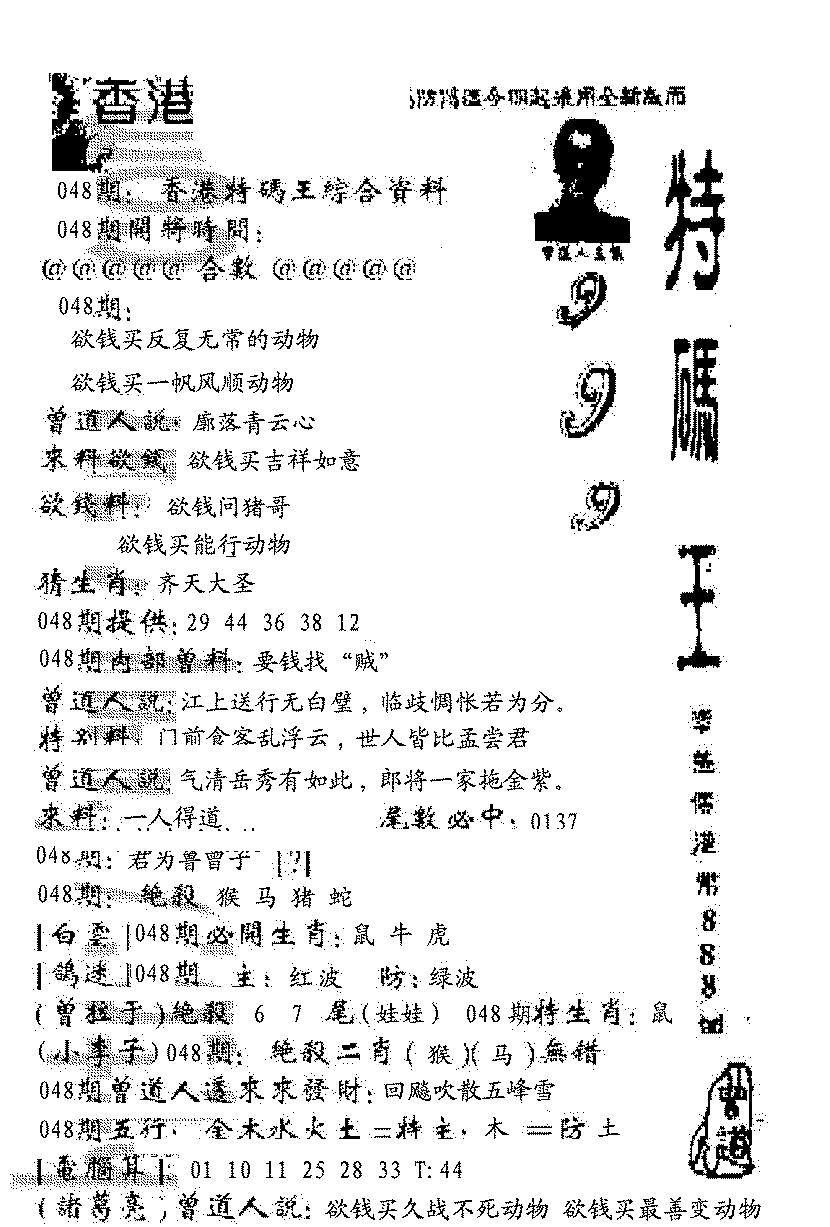 香港
048期：香港特碼王綜合資料
048期開將時間：
@@@@@ 合數 @@@@@
048期：
欲钱买反复无常的动物
欲钱买一帆风顺动物
曾道人說：廓落青云心
來料欲錢 欲钱买吉祥如意
欲錢料：欲钱问猪哥
欲钱买能行动物
猜生肖：齐天大圣
048期提供：29 44 36 38 12
048期内部曾料：要钱找“贼”
曾道人説：江上送行无白璧，临歧惆怅若为分。
特别料：门前食客乱浮云，世人皆比孟尝君
曾道人說 气清岳秀有如此，郎将一家拖金紫。
來料：一人得道 尾數必中：0137
048期：君为鲁曾子 [?]
048期：絶殺 猴 马 猪 蛇
[白雲]048期必開生肖：鼠 牛 虎
[鴿迷]048期 主：红波 防：绿波
(曾拉于)絶殺 6 7 尾(娃娃) 048期特生肖：鼠
(小李子)048期：絶殺二肖(猴)(马)無錯
048期曾道人送來來發財：回飚吹散五峰雪
048期五行：金木水火土=特主：木 =防土
[電腦耳]：01 10 11 25 28 33 T:44
(諸葛亮)曾道人說：欲钱买久战不死动物 欲钱买最善变动物
999
特碼王
港幣888
曾道人